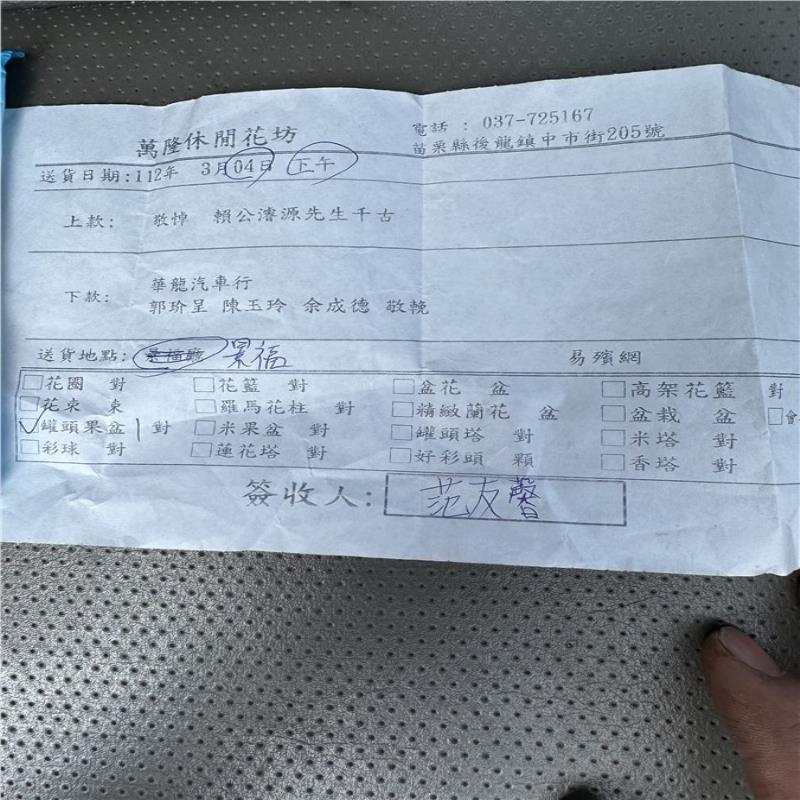 萬隆休閒花坊
電話：037-725167
苗栗縣後龍鎮中市街205號
送貨日期:112年 3月04日 下午
上款: 敬悼 賴公濬源先生千古
下款: 華龍汽車行
郭玠呈 陳玉玲 余成德 敬輓
送貨地點: 景福廳 景福 易殯網
□花圈 對 □花籃 對 □盆花 盆 □高架花籃 對
□花束 束 □羅馬花柱 對 □精緻蘭花 盆 □盆栽 盆 □會
✓罐頭果盆 1 對 □米果盆 對 □罐頭塔 對 □米塔 對
□彩球 對 □蓮花塔 對 □好彩頭 顆 □香塔 對
簽收人: 范友馨